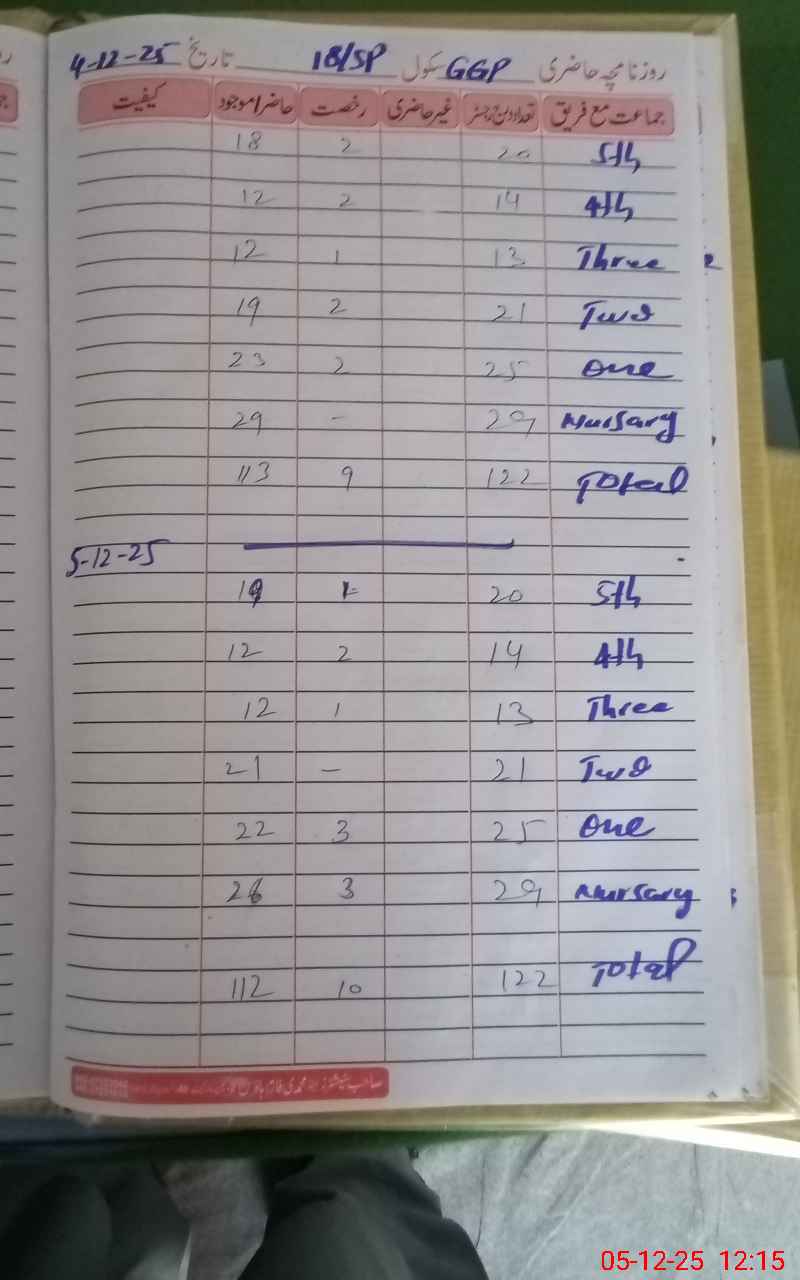 روزنامچہ حاضری سکول GGP 18/SP تاریخ 4-12-25
جماعت مع فریق تعداد درج رجسٹر غیر حاضری رخصت حاضر/موجود کیفیت
5th 20 2 18
4th 14 2 12
Three 13 1 12
Two 21 2 19
One 25 2 23
Nursary 29 - 29
Total 122 9 113
5-12-25
5th 20 1 19
4th 14 2 12
Three 13 1 12
Two 21 - 21
One 25 3 22
Nursary 29 3 26
Total 122 10 112
05-12-25 12:15